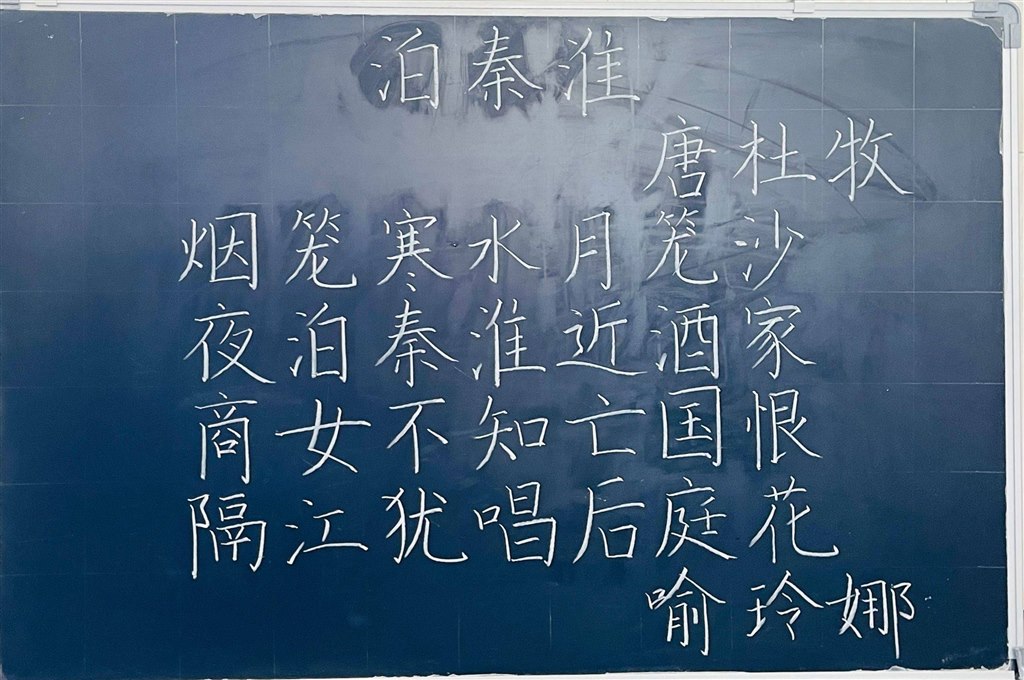 泊秦淮
唐杜牧
烟笼寒水月笼沙
夜泊秦淮近酒家
商女不知亡国恨
隔江犹唱后庭花
喻玲娜